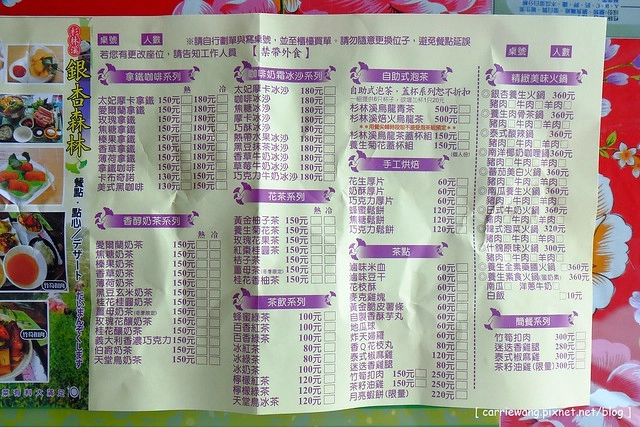 杉林溪
銀杏森林
餐點·點心／デザート
竹筍相肉
桌號 人數
※請自行劃單與寫桌號，並至櫃檯買單。請勿隨意更換位子，避免餐點延誤
若您有更改座位，請告知工作人員 【禁帶外食】
拿鐵咖啡系列
熱 冷
太妃摩卡拿鐵 150元 180元
愛爾蘭拿鐵 150元 180元
玫瑰拿鐵 150元 180元
焦糖拿鐵 150元 180元
榛果拿鐵 150元 180元
香草拿鐵 150元 180元
薄荷拿鐵 150元 180元
拿鐵咖啡 150元 180元
卡布奇諾 150元 180元
美式黑咖啡 130元 150元
香醇奶茶系列
熱 冷
愛爾蘭奶茶 150元
焦糖奶茶 150元
榛果奶茶 150元
香草奶茶 150元
薄荷奶茶 150元
黑豆玄米奶茶 150元
桂花桂圓奶茶 150元
薑母奶茶 150元
玫瑰花釀奶茶 150元
桂花釀奶茶 150元
義大利香濃巧克力 150元
伯爵奶茶 150元
天堂鳥奶茶 150元
咖啡奶霜冰沙系列
太妃摩卡冰沙 180元
咖啡冰沙 180元
焦糖冰沙 180元
摩卡冰沙 180元
巧酥冰沙 180元
熱帶水果冰沙 180元
黑豆抹茶冰沙 180元
香草牛奶冰沙 180元
草莓牛奶冰沙 180元
巧克力牛奶冰沙 180元
花茶系列
熱 冷
黃金柚子茶 150元
養生菊花茶 150元
玫瑰花果茶 150元
紅棗桂圓茶 150元
桔子茶 150元
薑母茶 150元
桂花香柚茶 150元
茶飲系列
蜂蜜綠茶 100元
百香紅茶 100元
百香綠茶 100元
冰紅茶 80元
冰綠茶 80元
冰奶茶 100元
檸檬紅茶 120元
檸檬綠茶 120元
天堂鳥冰茶 120元
自助式泡茶
自助式泡茶，蓋杯系列恕不折扣
杉林溪烏龍青茶 500元
杉林溪焙火烏龍茶 500元
杉林溪烏龍茶蓋杯組 150元
養生菊花茶蓋杯組 150元
手工烘焙
花生厚片 60元
奶酥厚片 60元
巧克力厚片 60元
蜂蜜鬆餅 120元
焦糖鬆餅 120元
巧克力鬆餅 120元
茶點
滷味米血 60元
滷味豆干 60元
花枝酥 60元
麥克雞塊 60元
黃金脆皮薯條 60元
自製香酥芋丸 60元
地瓜球 60元
炸天婦羅 60元
香Q花枝丸 90元
泰式椒麻雞 120元
迷迭香雞腿 120元
竹筍扣肉 150元 250元
茶籽油雞 150元 250元
月亮蝦餅(限量) 220元
桌號 人數
精緻美味火鍋
◎銀杏養生火鍋 360元
豬肉 牛肉 羊肉
◎養生肉骨茶鍋 360元
豬肉 牛肉 羊肉
◎泰式酸辣鍋 360元
豬肉 牛肉 羊肉
◎南洋椰奶咖哩鍋 360元
豬肉 牛肉 羊肉
◎蕃茄美白火鍋 360元
豬肉 牛肉 羊肉
◎南瓜養生火鍋 360元
豬肉 牛肉 羊肉
◎日式牛奶火鍋 360元
豬肉 牛肉 羊肉
◎韓式泡菜火鍋 320元
豬肉 牛肉 羊肉
◎竹鶴原味火鍋 300元
豬肉 牛肉 羊肉
◎養生素藥膳火鍋 360元
◎養生素食火鍋 360元
南瓜 洋蔥牛奶
白飯 10元
簡餐系列
竹筍扣肉 300元
迷迭香雞腿 280元
泰式椒麻雞 300元
茶籽油雞(限量) 350元
[ carriewang.pixnet.net/blog ]